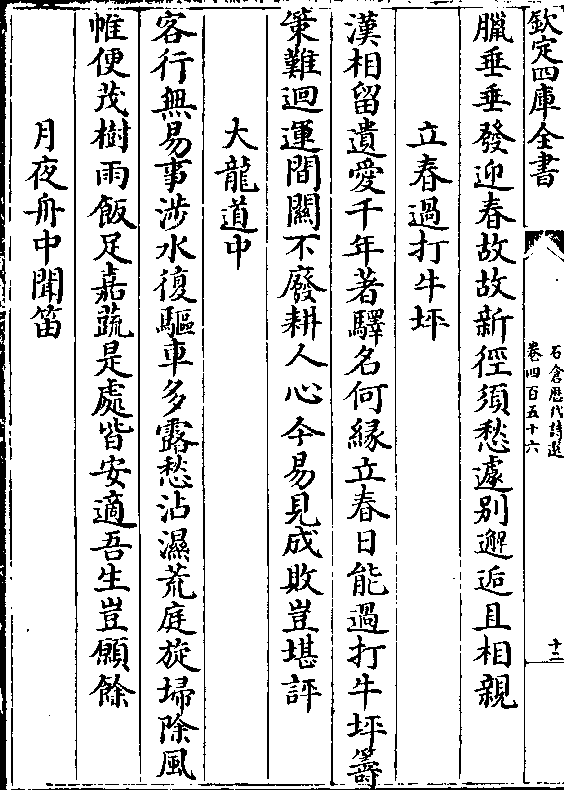 欽定四庫全書
石倉歴代詩選
卷四百五十六
十二
臘垂垂發迎春故故新徑須愁遽別邂逅且相親
立春過打牛坪
漢相留遺愛千年著驛名何縁立春日能過打牛坪籌
筞難迴運間關不廢耕人心今易見成敗豈堪評
大龍道中
客行無易事涉水復驅車多露愁沾濕荒庭旋埽除風
帷便茂樹雨飯足嘉蔬是處皆安適吾生豈願餘
月夜舟中聞笛